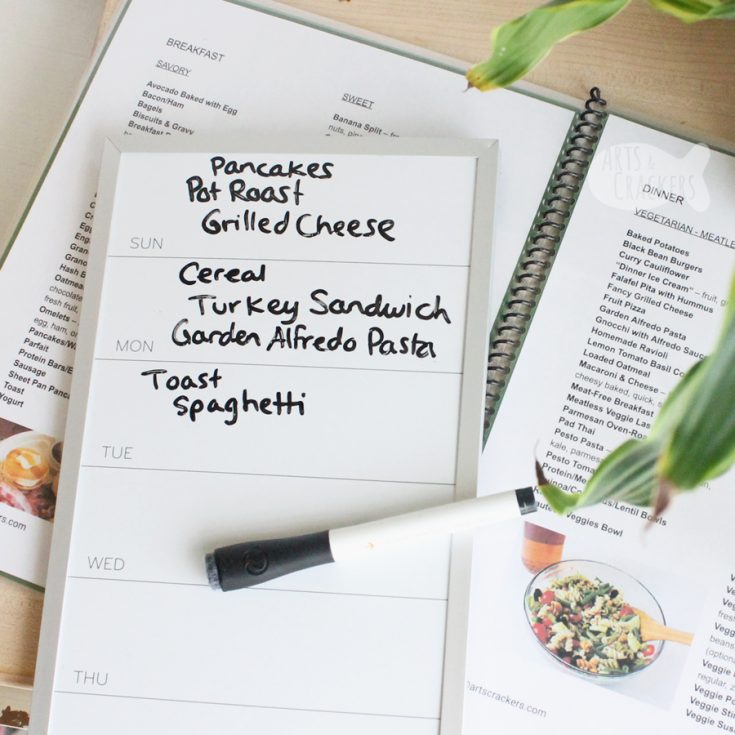 BREAKFAST
SAVORY
Avocado Baked with Egg
Bacon/Ham
Bagels
Biscuits & Gravy
Breakfast
SWEET
Banana Split –
nuts,
Hash B
chocolate
fresh fruit,
Omelets –
egg, ham,
Pancakes/Wa
Parfait
Protein Bars/E
Sausage
Sheet Pan Pancake
Toast
Yogurt
Pancakes
Pot Roast
Grilled Cheese
SUN
Cereal
Turkey Sandwich
Garden Alfredo Pasta
MON
Toast
Spaghetti
TUE
WED
THU
ARTS &
CRACKERS
DINNER
VEGETARIAN - MEATLE
Baked Potatoes
Black Bean Burgers
Curry Cauliflower
"Dinner Ice Cream" – fruit,
Falafel Pita with Hummus
Fancy Grilled Cheese
Fruit Pizza
Garden Alfredo Pasta
Gnocchi with Alfredo Sauce
Homemade Ravioli
Lemon Tomato Basil
Loaded Oatmeal
Macaroni & Cheese –
cheesy baked, quick,
Meat-Free Breakfast
Meatless Veggie Las
Parmesan Oven-Roa
Pad Thai
Pesto Pasta –
kale, parmesa
Pesto
Protein/Me
Quinoa/Co
/Lentil Bowl
Veggies Bowl
artscrackers.com
ers.com
Veggie
Veggie
Veggie
beans
(optional
Veggie
regular,
Veggie Po
Veggie Sti
Veggie Sus